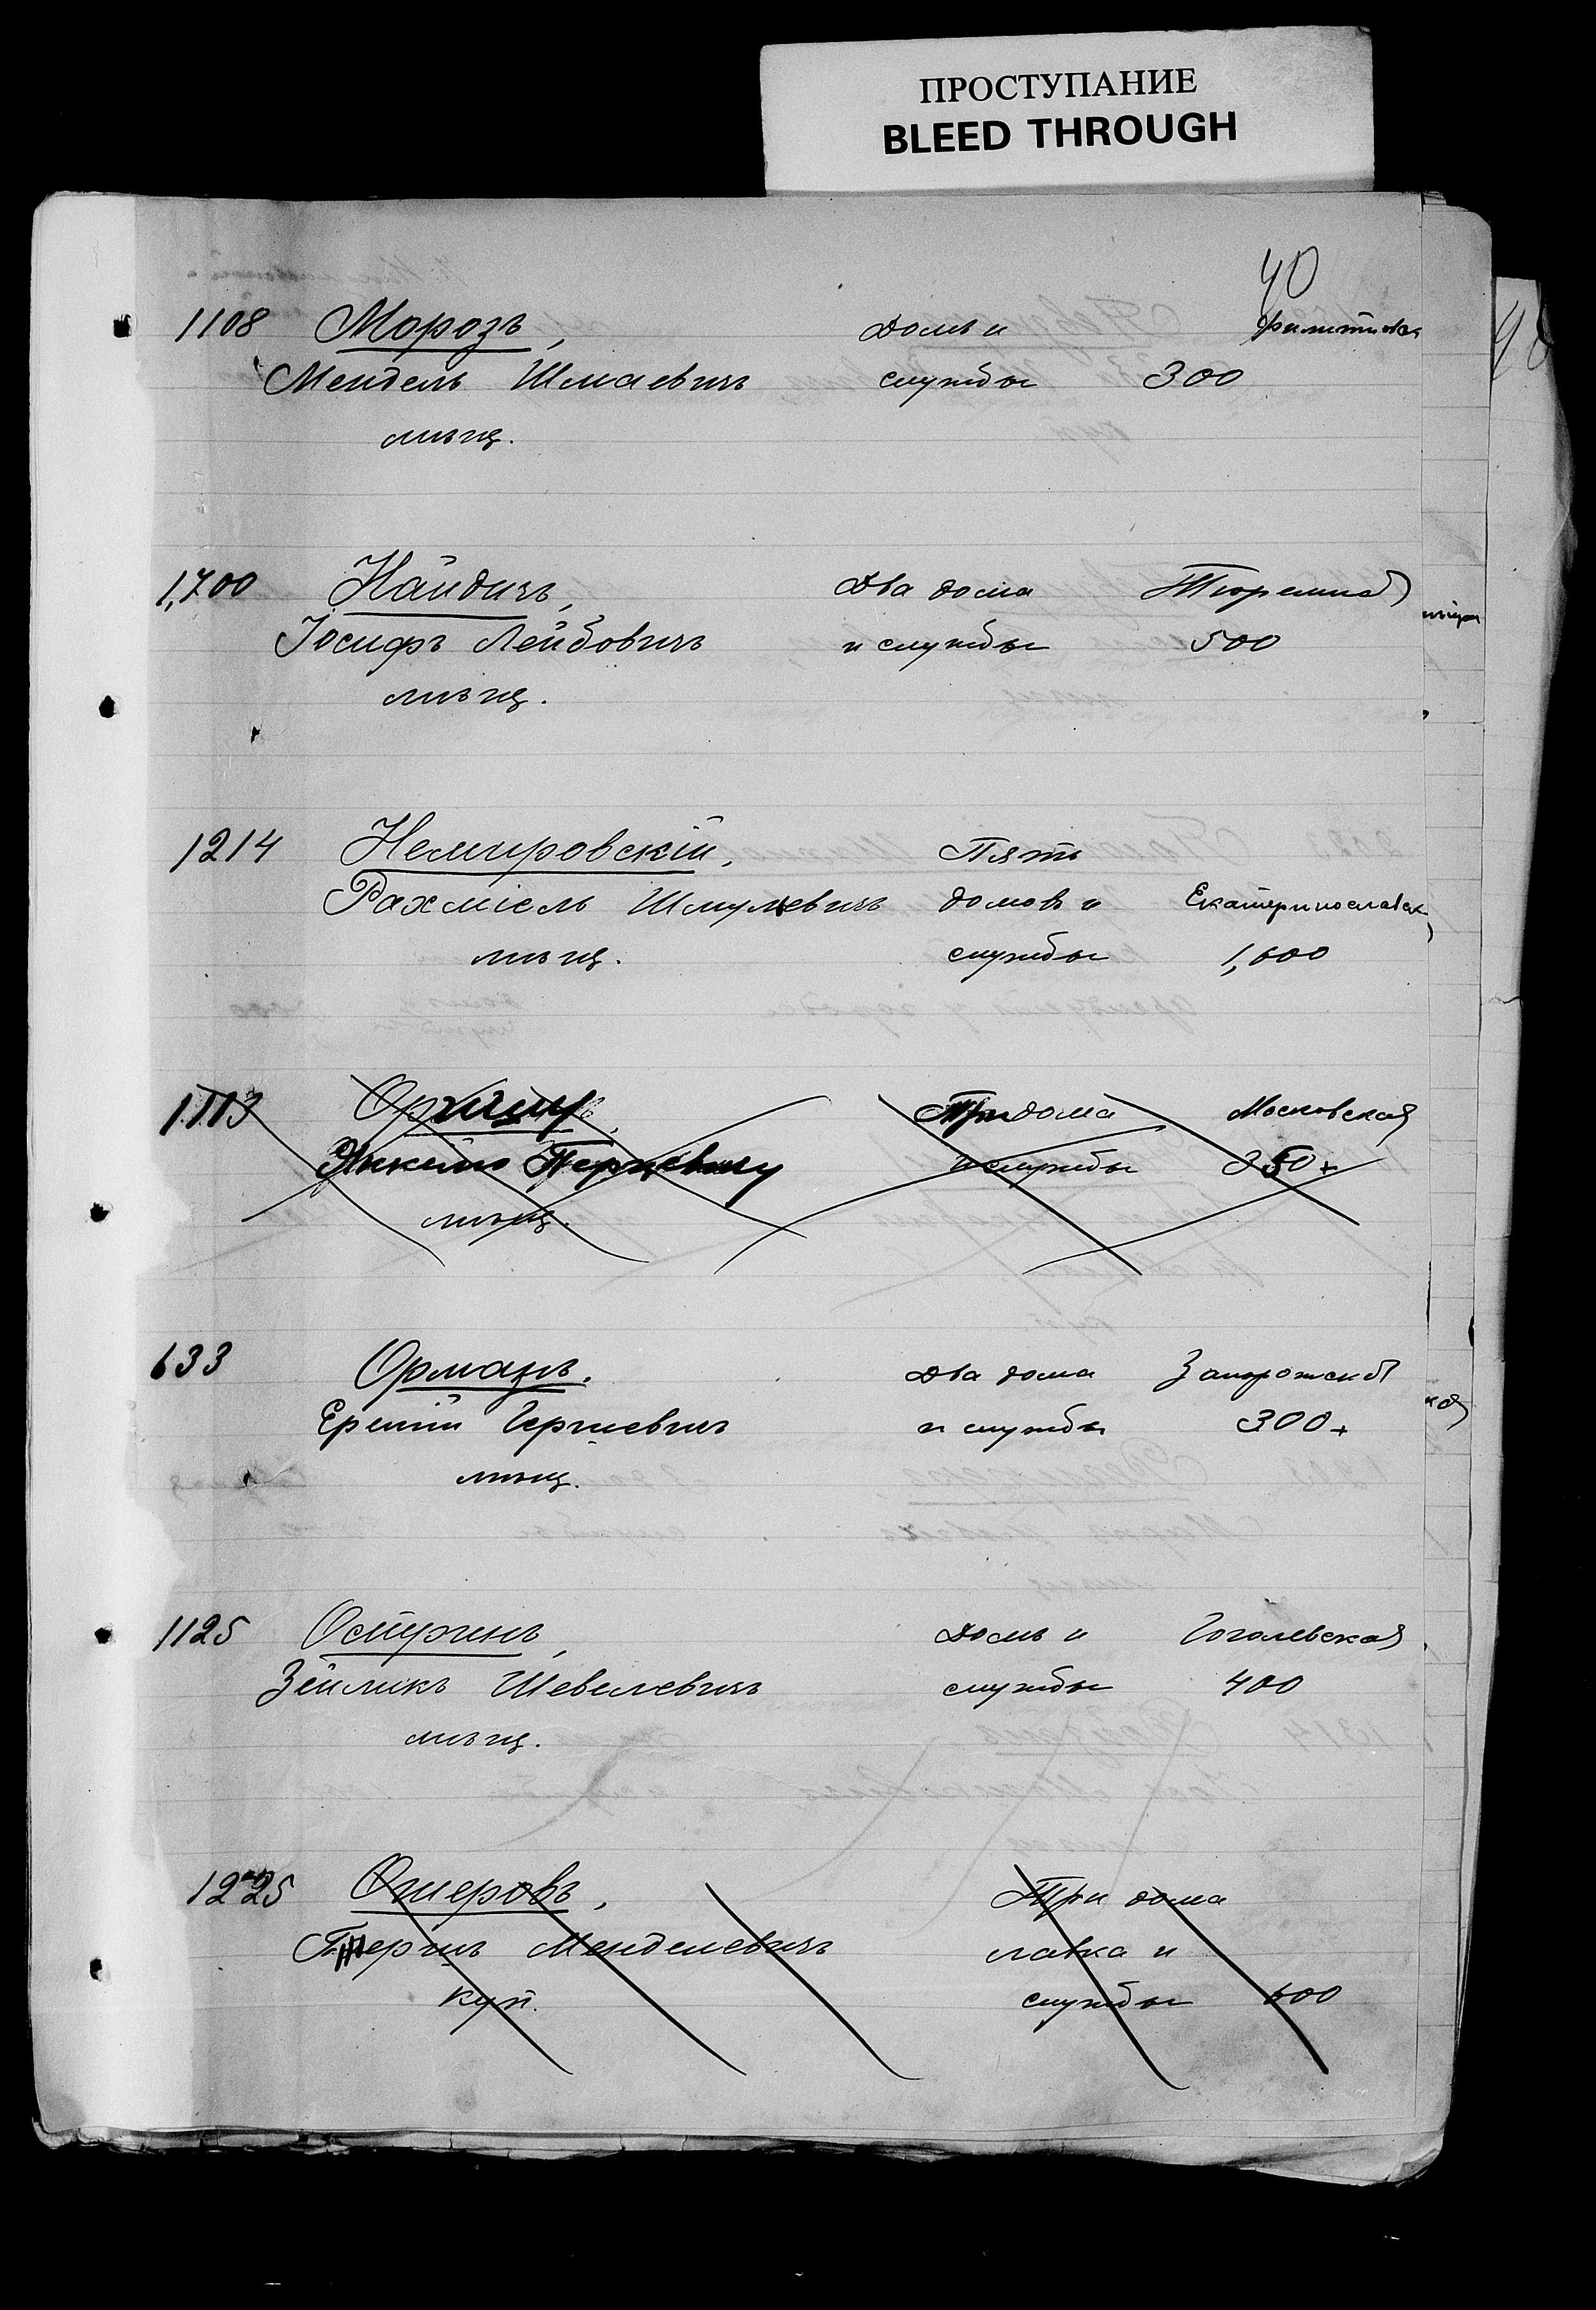 ПРОСТУПАНИЕ
BLEED THROUGH
40
1108 Морозъ, Домъ и
Мендель Шмаевичъ службы 300
мѣщ.
1,700 Найдичъ, Два дома Тюремная
Іосифъ Лейбовичъ и службы 500
мѣщ.
1214 Немировскій, Пять
Рахміель Шмулевичъ домовъ и Екатеринославск
мѣщ. службы 1,600
1113 Три дома Московская
и службы 350+
мѣщ.
633 Орманъ. Два дома
Гершевичъ и службы 300+
мѣщ.
1125 Остринъ, Домъ и Гоголевская
Зейликъ Шевелевичъ службы 400
мѣщ.
1225 Ошеровъ, Три дома
Менделевичъ лавка и
куп. службы 600